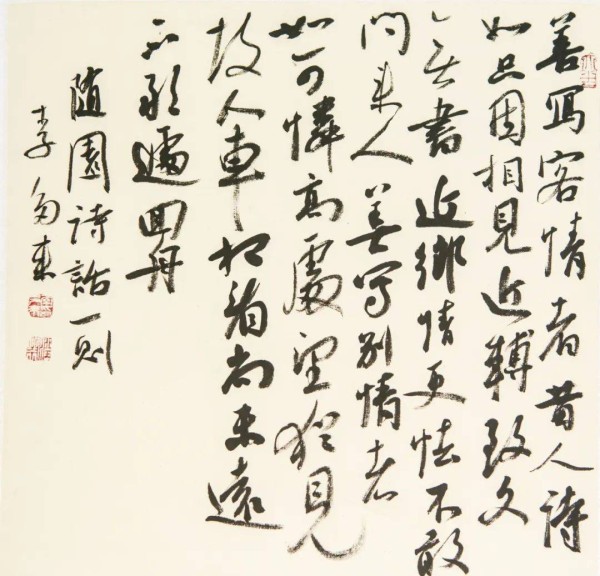 善寫客情者昔人詩
如只因相見近轉致久
无書近鄉情更怯不敢
問来人善写別情者
如可憐高處望猶見
故人車相看尚未遠
不敢遽回舟
随園詩話一则
李